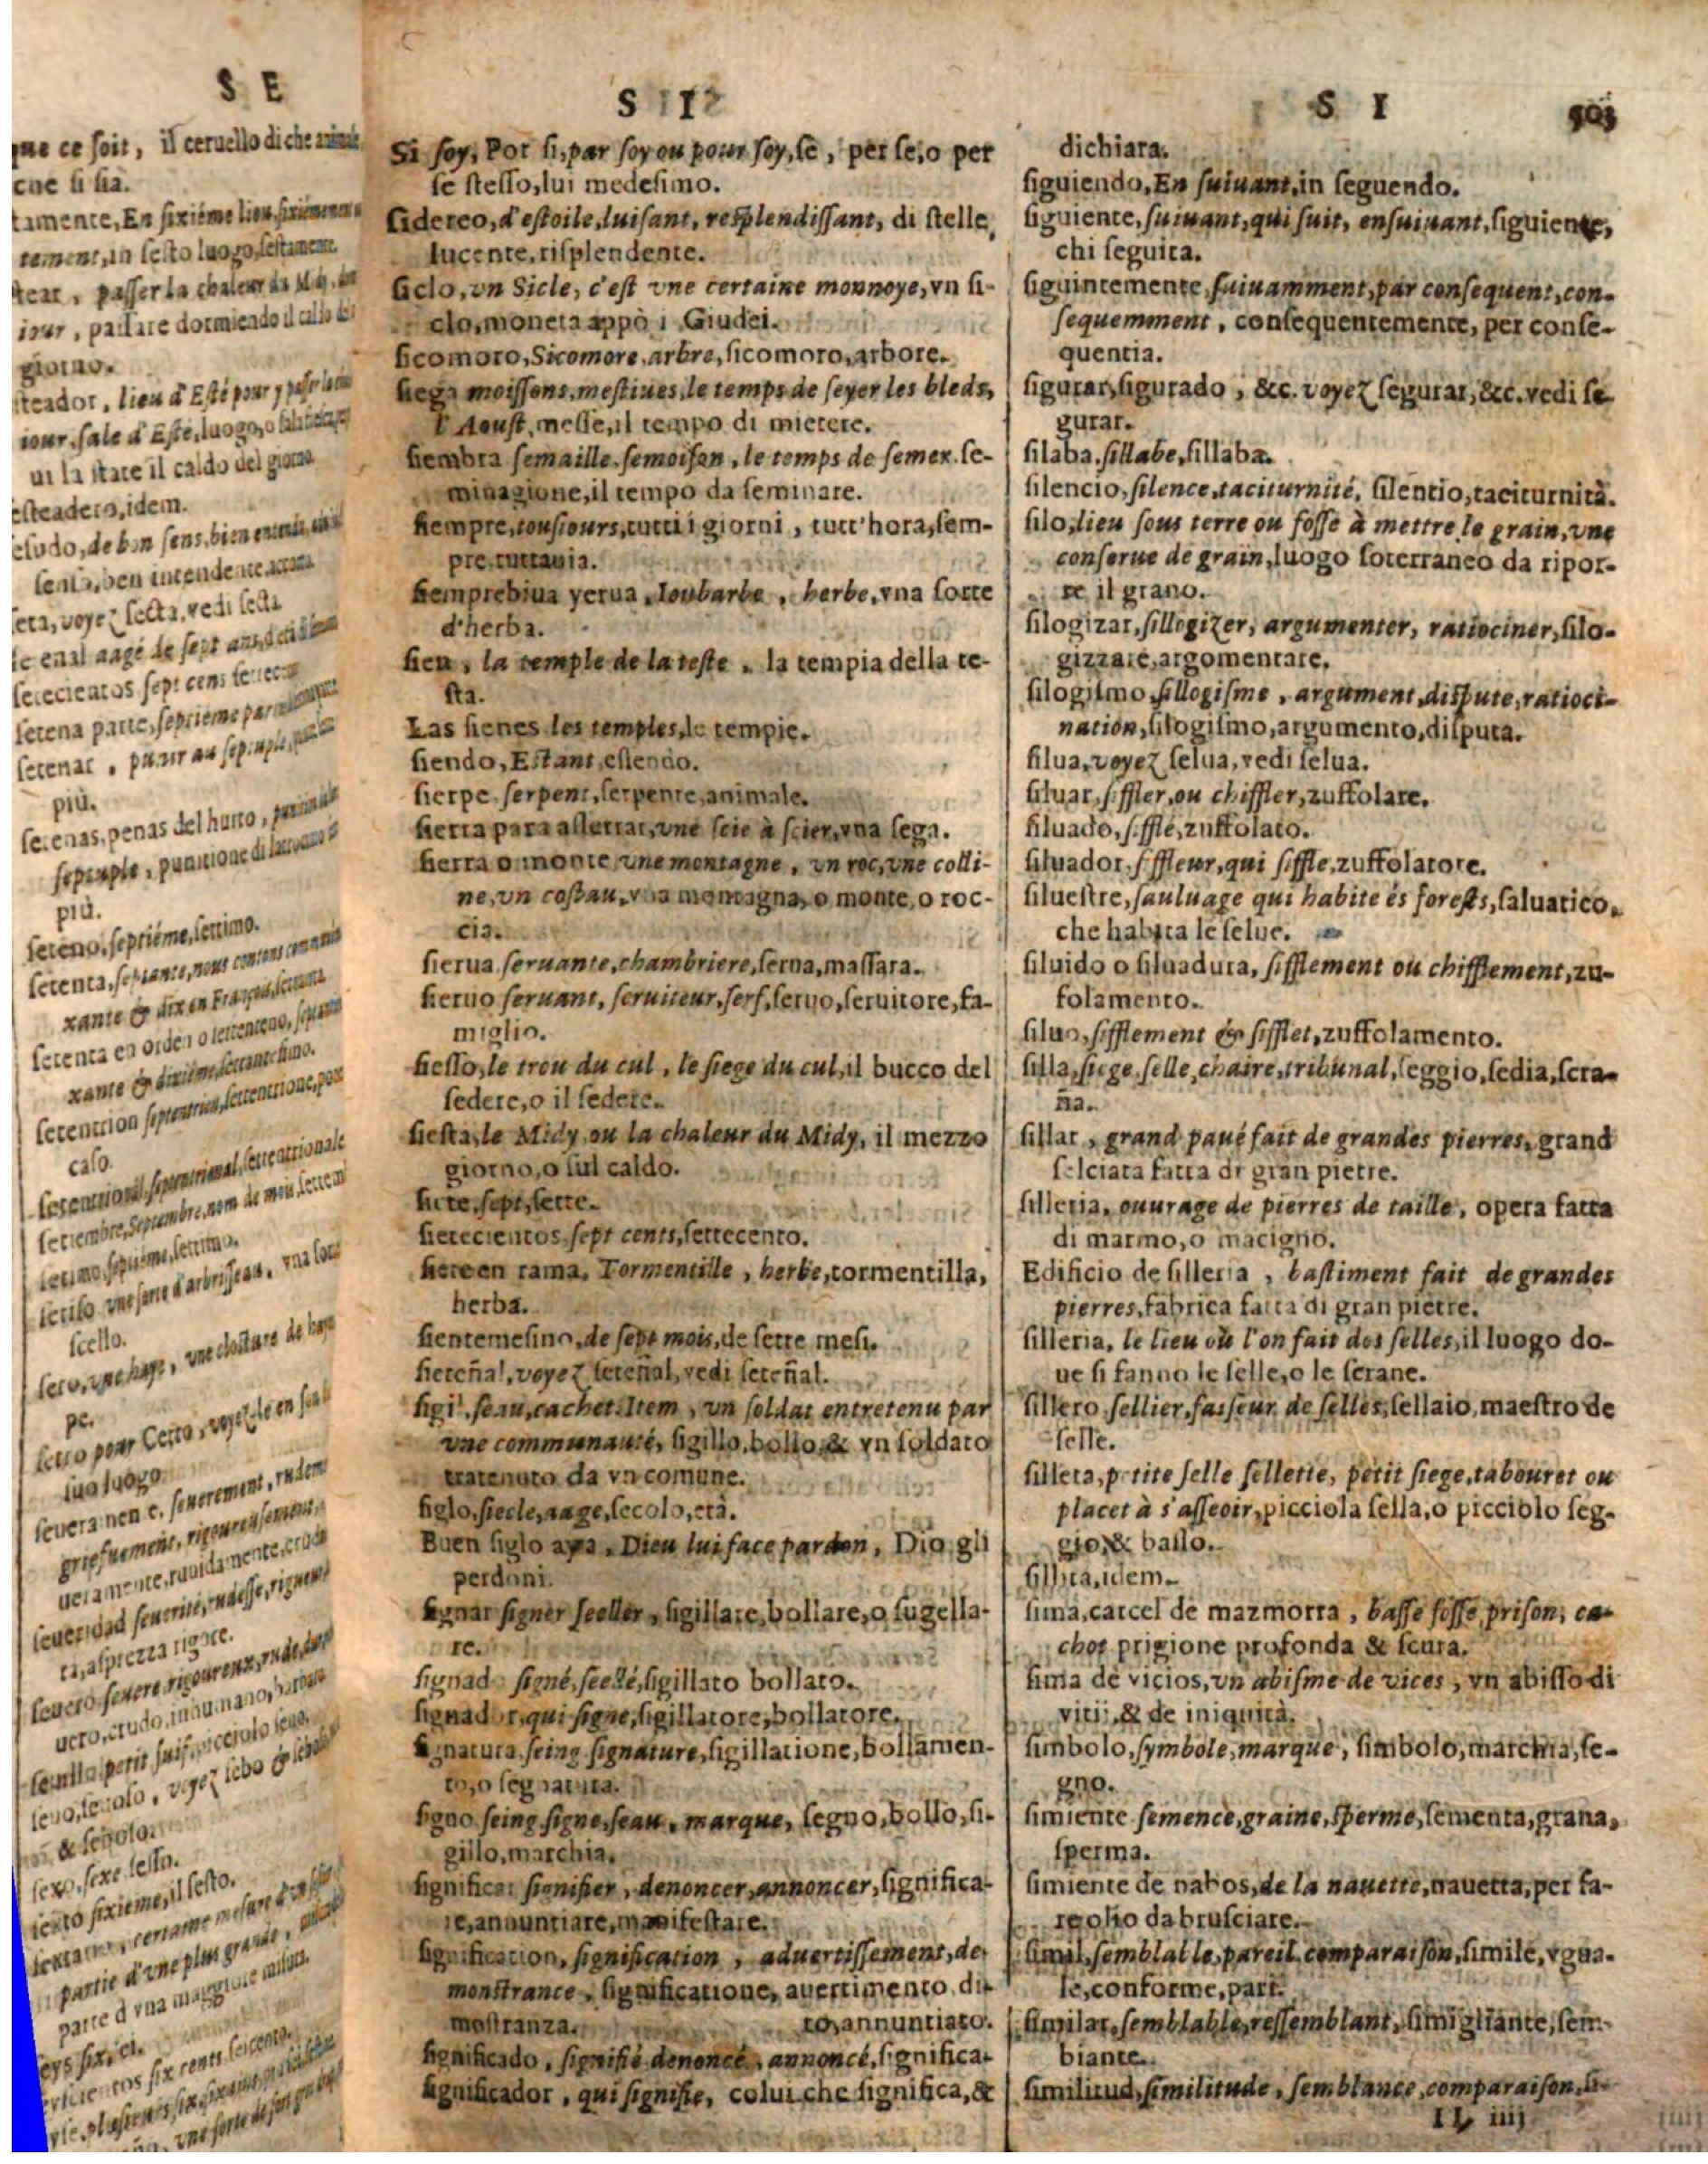 S E
que ce ſoit, il ceruello di che
cue ſi ſia.
tamente, En ſixiéme lieu,
tement, in ſeſto luogo, ſeſtamente.
tear, paſſer la chaleur du
paſſare dormiendo il caldo
giorno.
teador, lieu d'Eſté pour y paſſer
iour, ſale d'Eſté, luogo, o
ui la ſtate il caldo del giorno
eſteadero, idem.
eſudo, de bon ſens, bien entendu,
ben intendente
eta, voyez ſecta, vedi ſecta
enal aagé de ſept ans,
ſetecientos ſept cens
ſetena parte, ſeptieme
ſetenar, punir au ſeptuple,
più.
ſetenas, penas del hurto,
ſeptuple, punitione di
più.
ſeteno, ſeptiéme, ſettimo.
ſetenta, ſeptante, nous contons
xante & dix en François,
ſetenta en orden o ſetenteno,
xante & dixiéme, ſettanteſimo.
ſetentrion ſeptentrion, ſettentrione,
caſo.
ſetentrional, ſeptentrional, ſettentrionale
ſetiembre, Septembre, nom de mois,
ſetimo, ſeptiéme, ſettimo.
vne ſorte d'arbriſſeau, vna
ſcello.
ſeto, vne haye, vne cloſture de
pe.
ſetro pour Cetro, voyez-le en
ſuo luogo.
ſeuerement,
griefuement, rigoureuſement,
ueramente, ruuidamente,
ſeueridad ſeuerité, rudeſſe,
ta, aſprezza rigore.
ſeuero ſeuere rigoureux, rude,
uero, crudo, inhumano,
petit ſuif, picciolo ſeuo.
voyez ſebo &
& ſebolo.
ſexo, ſexe ſeſſo.
ſixieme, il ſeſto.
certaine meſure
partie d'vne plus grande,
parte d vna maggiore miſura.
ſeys ſix, ſei.
ſix cents ſeicento.
S I
Si ſoy, Por ſi, par ſoy ou pour ſoy, ſe, per ſe, o per
ſe ſteſſo, lui medeſimo.
ſidereo, d'eſtoile, luiſant, reſplendiſſant, di ſtelle,
lucente, riſplendente.
ſiclo, vn Sicle, c'eſt vne certaine monnoye, vn ſi-
clo, moneta appò i Giudei.
ſicomoro, Sicomore, arbre, ſicomoro, arbore.
ſiega moiſſons, meſtiues, le temps de ſeyer les bleds,
l'Aouſt, meſſe, il tempo di mietere.
ſiembra ſemaille, ſemoiſon, le temps de ſemer, ſe-
minagione, il tempo da ſeminare.
ſiempre, touſiours, tutti i giorni, tutt'hora, ſem-
pre, tuttauia.
ſiemprebiua yerua, Ioubarbe, herbe, vna ſorte
d'herba.
ſien, la temple de la teſte, la tempia della te-
ſta.
Las ſienes les temples, le tempie.
ſiendo, Eſtant, eſſendo.
ſierpe ſerpent, ſerpente, animale.
ſierra para aſſerrar, vne ſcie à ſcier, vna ſega.
ſierra o monte vne montagne, vn roc, vne colli-
ne, vn coſtau, vna montagna, o monte, o roc-
cia.
ſierua ſeruante, chambriere, ſerua, maſſara.
ſieruo ſeruant, ſeruiteur, ſerf, ſeruo, ſeruitore, fa-
miglio.
ſieſſo, le trou du cul, le ſiege du cul, il bucco del
ſedere, o il ſedere.
ſieſta, le Midy, ou la chaleur du Midy, il mezzo
giorno, o ſul caldo.
ſiete, ſept, ſette.
ſietecientos ſept cents, ſettecento.
ſiete en rama, Tormentille, herbe, tormentilla,
herba.
ſientemeſino, de ſept mois, de ſette meſi.
ſieteñal, voyez ſeteñal, vedi ſeteñal.
ſigil, ſeau, cachet. Item, vn ſoldat entretenu par
vne communauté, ſigillo, bollo, & vn ſoldato
tratenuto da vn comune.
ſiglo, ſiecle, aage, ſecolo, età.
Buen ſiglo aya, Dieu lui face pardon, Dio gli
perdoni.
ſignar ſigner ſeeller, ſigillare, bollare, o ſugella-
re.
ſignado ſigné, ſeellé, ſigillato bollato.
ſignador, qui ſigne, ſigillatore, bollatore.
ſignatura ſeing ſignature, ſigillatione, bollamen-
to, o ſegnatura.
ſigno ſeing, ſigne, ſeau, marque, ſegno, bollo, ſi-
gillo, marchia.
ſignificar ſignifier, denoncer, annoncer, ſignifica-
re, annuntiare, manifeſtare.
ſignification, ſignification, aduertiſſement, de-
monſtrance, ſignificatione, auertimento, di-
moſtranza. to, annuntiato.
ſignificado, ſignifié denoncé, annoncé, ſignifica-
ſignificador, qui ſignifie, colui che ſignifica, &
S I 503
dichiara.
ſiguiendo, En ſuiuant, in ſeguendo.
ſiguiente, ſuiuant, qui ſuit, enſuiuant, ſiguiente,
chi ſeguita.
ſiguintemente, ſuiuamment, par conſequent, con-
ſequemment, conſequentemente, per conſe-
quentia.
ſigurar, ſigurado, &c. voyez ſegurar, &c. vedi ſe-
gurar.
ſilaba, ſillabe, ſillaba.
ſilencio, ſilence, taciturnité, ſilentio, taciturnità.
ſilo, lieu ſous terre ou foſſe à mettre le grain, vne
conſerue de grain, luogo ſoterraneo da ripor-
re il grano.
ſilogizar, ſillogizer, argumenter, ratiociner, ſilo-
gizzare, argomentare.
ſilogiſmo, ſillogiſme, argument, diſpute, ratioci-
nation, ſilogiſmo, argumento, diſputa.
ſilua, voyez ſelua, vedi ſelua.
ſiluar, ſiffler, ou chiffler, zuffolare.
ſiluado, ſifflé, zuffolato.
ſiluador, ſiffleur, qui ſiffle, zuffolatore.
ſilueſtre, ſauluage qui habite és foreſts, ſaluatico,
che habita le ſelue.
ſiluido o ſiluadura, ſifflement ou chifflement, zu-
folamento.
ſiluo, ſifflement & ſifflet, zuffolamento.
ſilla, ſiege, ſelle, chaire, tribunal, ſeggio, ſedia, ſcra-
ña.
ſillar, grand paué fait de grandes pierres, grand
ſelciata fatta di gran pietre.
ſilleria, ouurage de pierres de taille, opera fatta
di marmo, o macigno.
Edificio de ſilleria, baſtiment fait de grandes
pierres, fabrica fatta di gran pietre.
ſilleria, le lieu où l'on fait des ſelles, il luogo do-
ue ſi fanno le ſelle, o le ſcrane.
ſillero, ſellier, faiſeur de ſelles, ſellaio, maeſtro de
ſelle.
ſilleta, petite ſelle ſellette, petit ſiege, tabouret ou
placet à s'aſſeoir, picciola ſella, o picciolo ſeg-
gio, & baſſo.
ſillita, idem.
ſima, carcel de mazmorra, baſſe foſſe, priſon, ca-
chot prigione profonda & ſcura.
ſima de vicios, vn abiſme de vices, vn abiſſo di
vitij, & de iniquità.
ſimbolo, ſymbole, marque, ſimbolo, marchia, ſe-
gno.
ſimiente ſemence, graine, ſperme, ſementa, grana,
ſperma.
ſimiente de nabos, de la nauette, nauetta, per fa-
re olio da bruſciare.
ſimil, ſemblable, pareil, comparaiſon, ſimile, vgua-
le, conforme, pari.
ſimilar, ſemblable, reſſemblant, ſimigliante, ſem-
biante.
ſimilitud, ſimilitude, ſemblance, comparaiſon, ſi-
II iiij